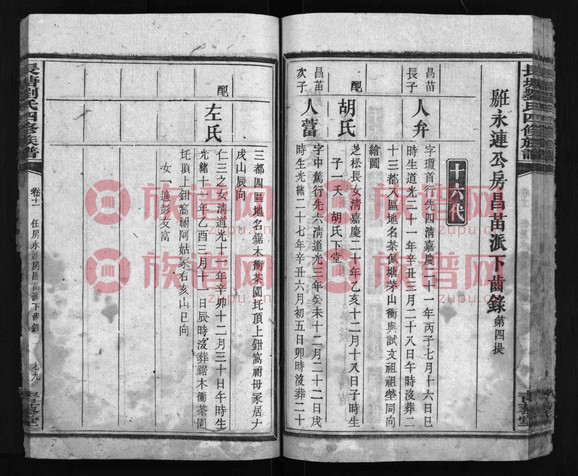 雒永連公房昌苗派下齒錄 第四提
十六代
昌苗
長子
人弁
字瓊首行先四清嘉慶二十一年丙子七月十六日巳
時生道光二十一年辛丑三月二十八日午時沒葬二
十三都入區地名茶佩塘茅山衝與試文祖祖塋同向
繪圖
配
胡氏
芝松長女清嘉慶二十年乙亥十二月十八日子時生
子一天 胡氏下堂
昌苗
次子
人蓄
字中萬行先六清道光三年癸未十二月二十二日戌
時生光緒二十七年辛丑六月初五日卯時沒葬二十
三都四區地名鋸木衝茶園圫頂上鉗窩祔母冢居左
戌山辰向
配
左氏
仁三之女清道光十一年辛卯十二月三十日午時生
光緒十一年乙酉三月十一日辰時沒葬鋸木衝茶園
圫頂上鉗窩祔阿姑冢右亥山巳向
女一適彭友富
長塘劉氏四修族譜
卷廿一
任房永連房昌苗派下齒錄
族谱网
zupu.cn